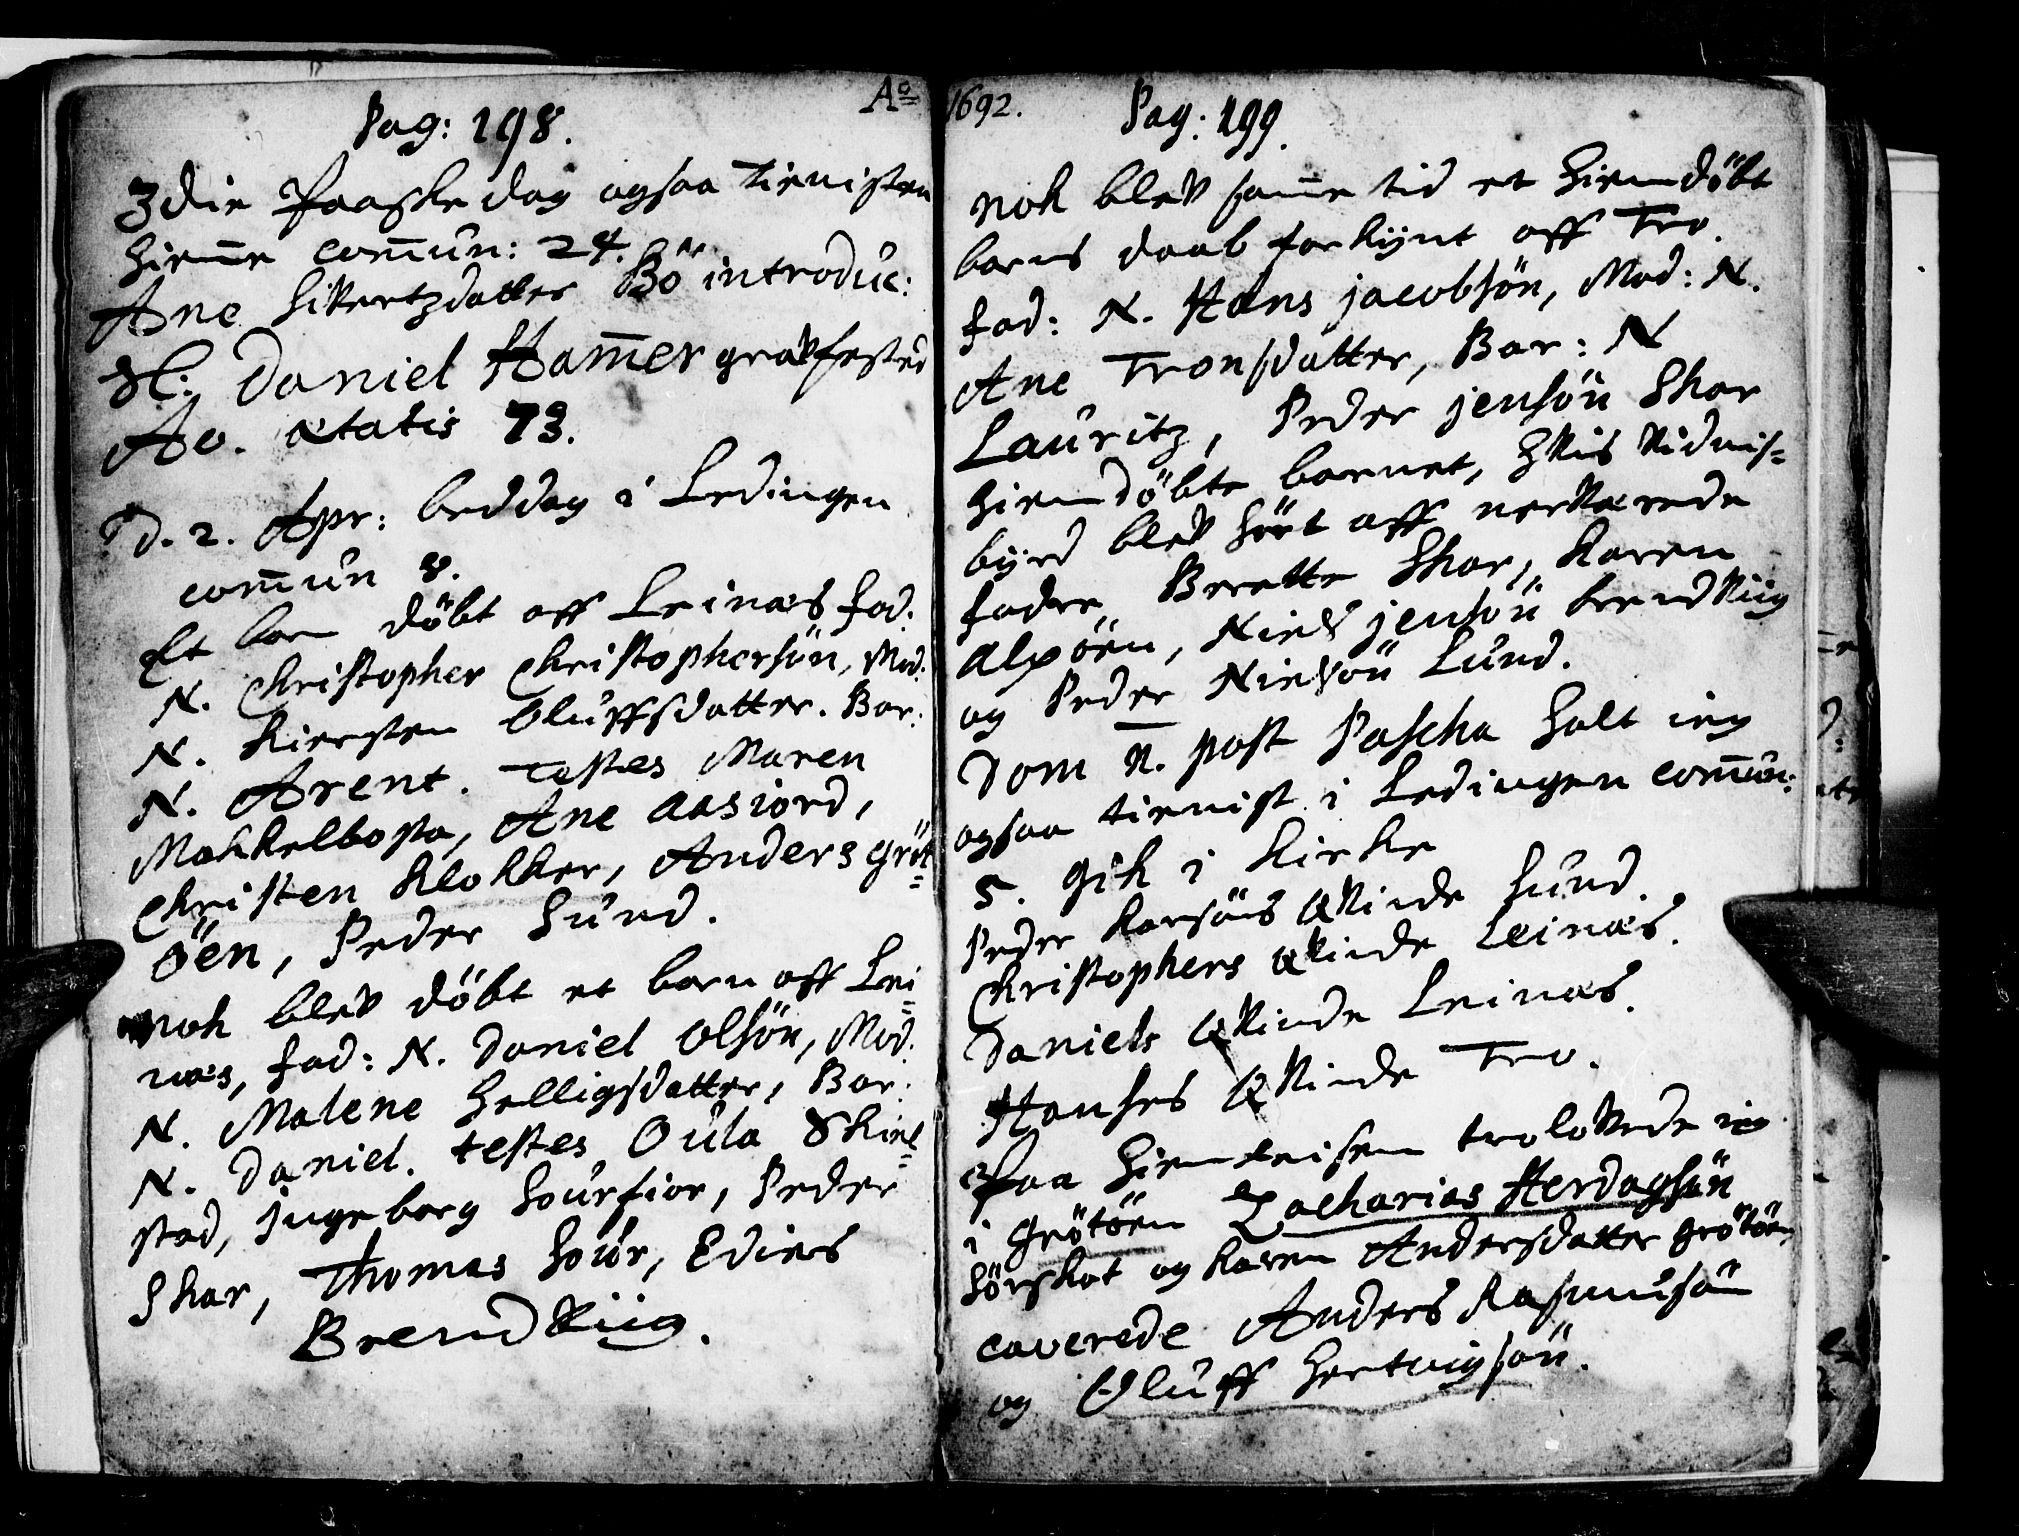 Pag: 198.
Ao
3die Paaske dag ogsaa tienisten
hieme comun: 24.
Ane Sivertzdatter Bö introduc:
Sl: Daniel Hamer gravfested
Ao. ætatis 73.
D. 2. Apr: beddag i Ledingen
comun 8.
Et barn döbt aff Leinæs fad:
N. Christopher Christophersön, Mod:
N. Kiersten Oluffsdatter. Bar:
N. Arent. Testes Maren
Makkelbosta, Ane Aasiord,
Christen Klokker, Anders Gröt=
öen, Peder Sund.
Nok blev döbt et barn aff Lei=
næs, fad: N. Daniel Olsön, Mod:
N. Malene Helligsdatter, Bar:
N. Daniel. testes Oula Skiel=
stad, Jngeborg Sourfior, Peder
Skar, Thomas Sour, Ediers
Brendviig.
1692.
Pag: 199.
Nok blev same tid et hiemdöbt
barns daab forkynt aff Tro.
fad: N. Hans Jacobsön, Mod: N.
Ane Tronsdatter, Bar: N
Lauritz, Peder Jensön Skar
hiemdöbte barnet, hvis vidnis=
byrd blev hört aff nerværede
fadre Berette Skar, Karen
Alpöen, Niels Jensön Brendviig
og Peder Nielsön Lund.
Dom n. post Pascha holt ieg
ogsaa tienist i Ledingen comun:
5. gik i Kirke
Peder Larsöns Qvinde Sund.
Christophers Qvinde Leinæs.
Daniels Qvinde Leinæs.
Hanses Qvinde Tro.
Paa hiemreisen trolovede ieg
i Grötöen Zacharias Herdagsön
Sörskot og Karen Andersdatter Grötöen,
caverede Anders Rasmusön
og Oluff Hertvigsön.